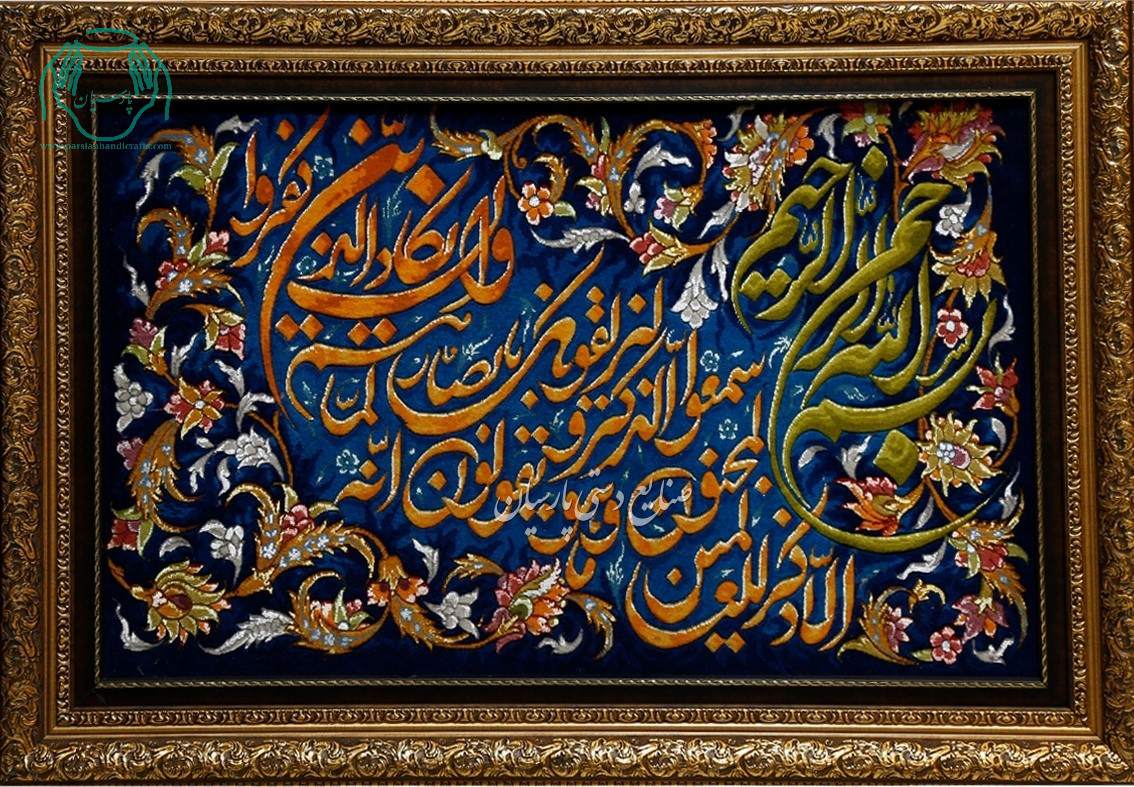 بسم الله الرحمن الرحیم
وان یکاد الذین کفروا
لیزلقونک بابصارهم لما
سمعوا الذکر و یقولون انه
لمجنون و ما هو
الا ذکر للعالمین
پارسیان
www.parsianhandicrafts.com
صنایع دستی پارسیان